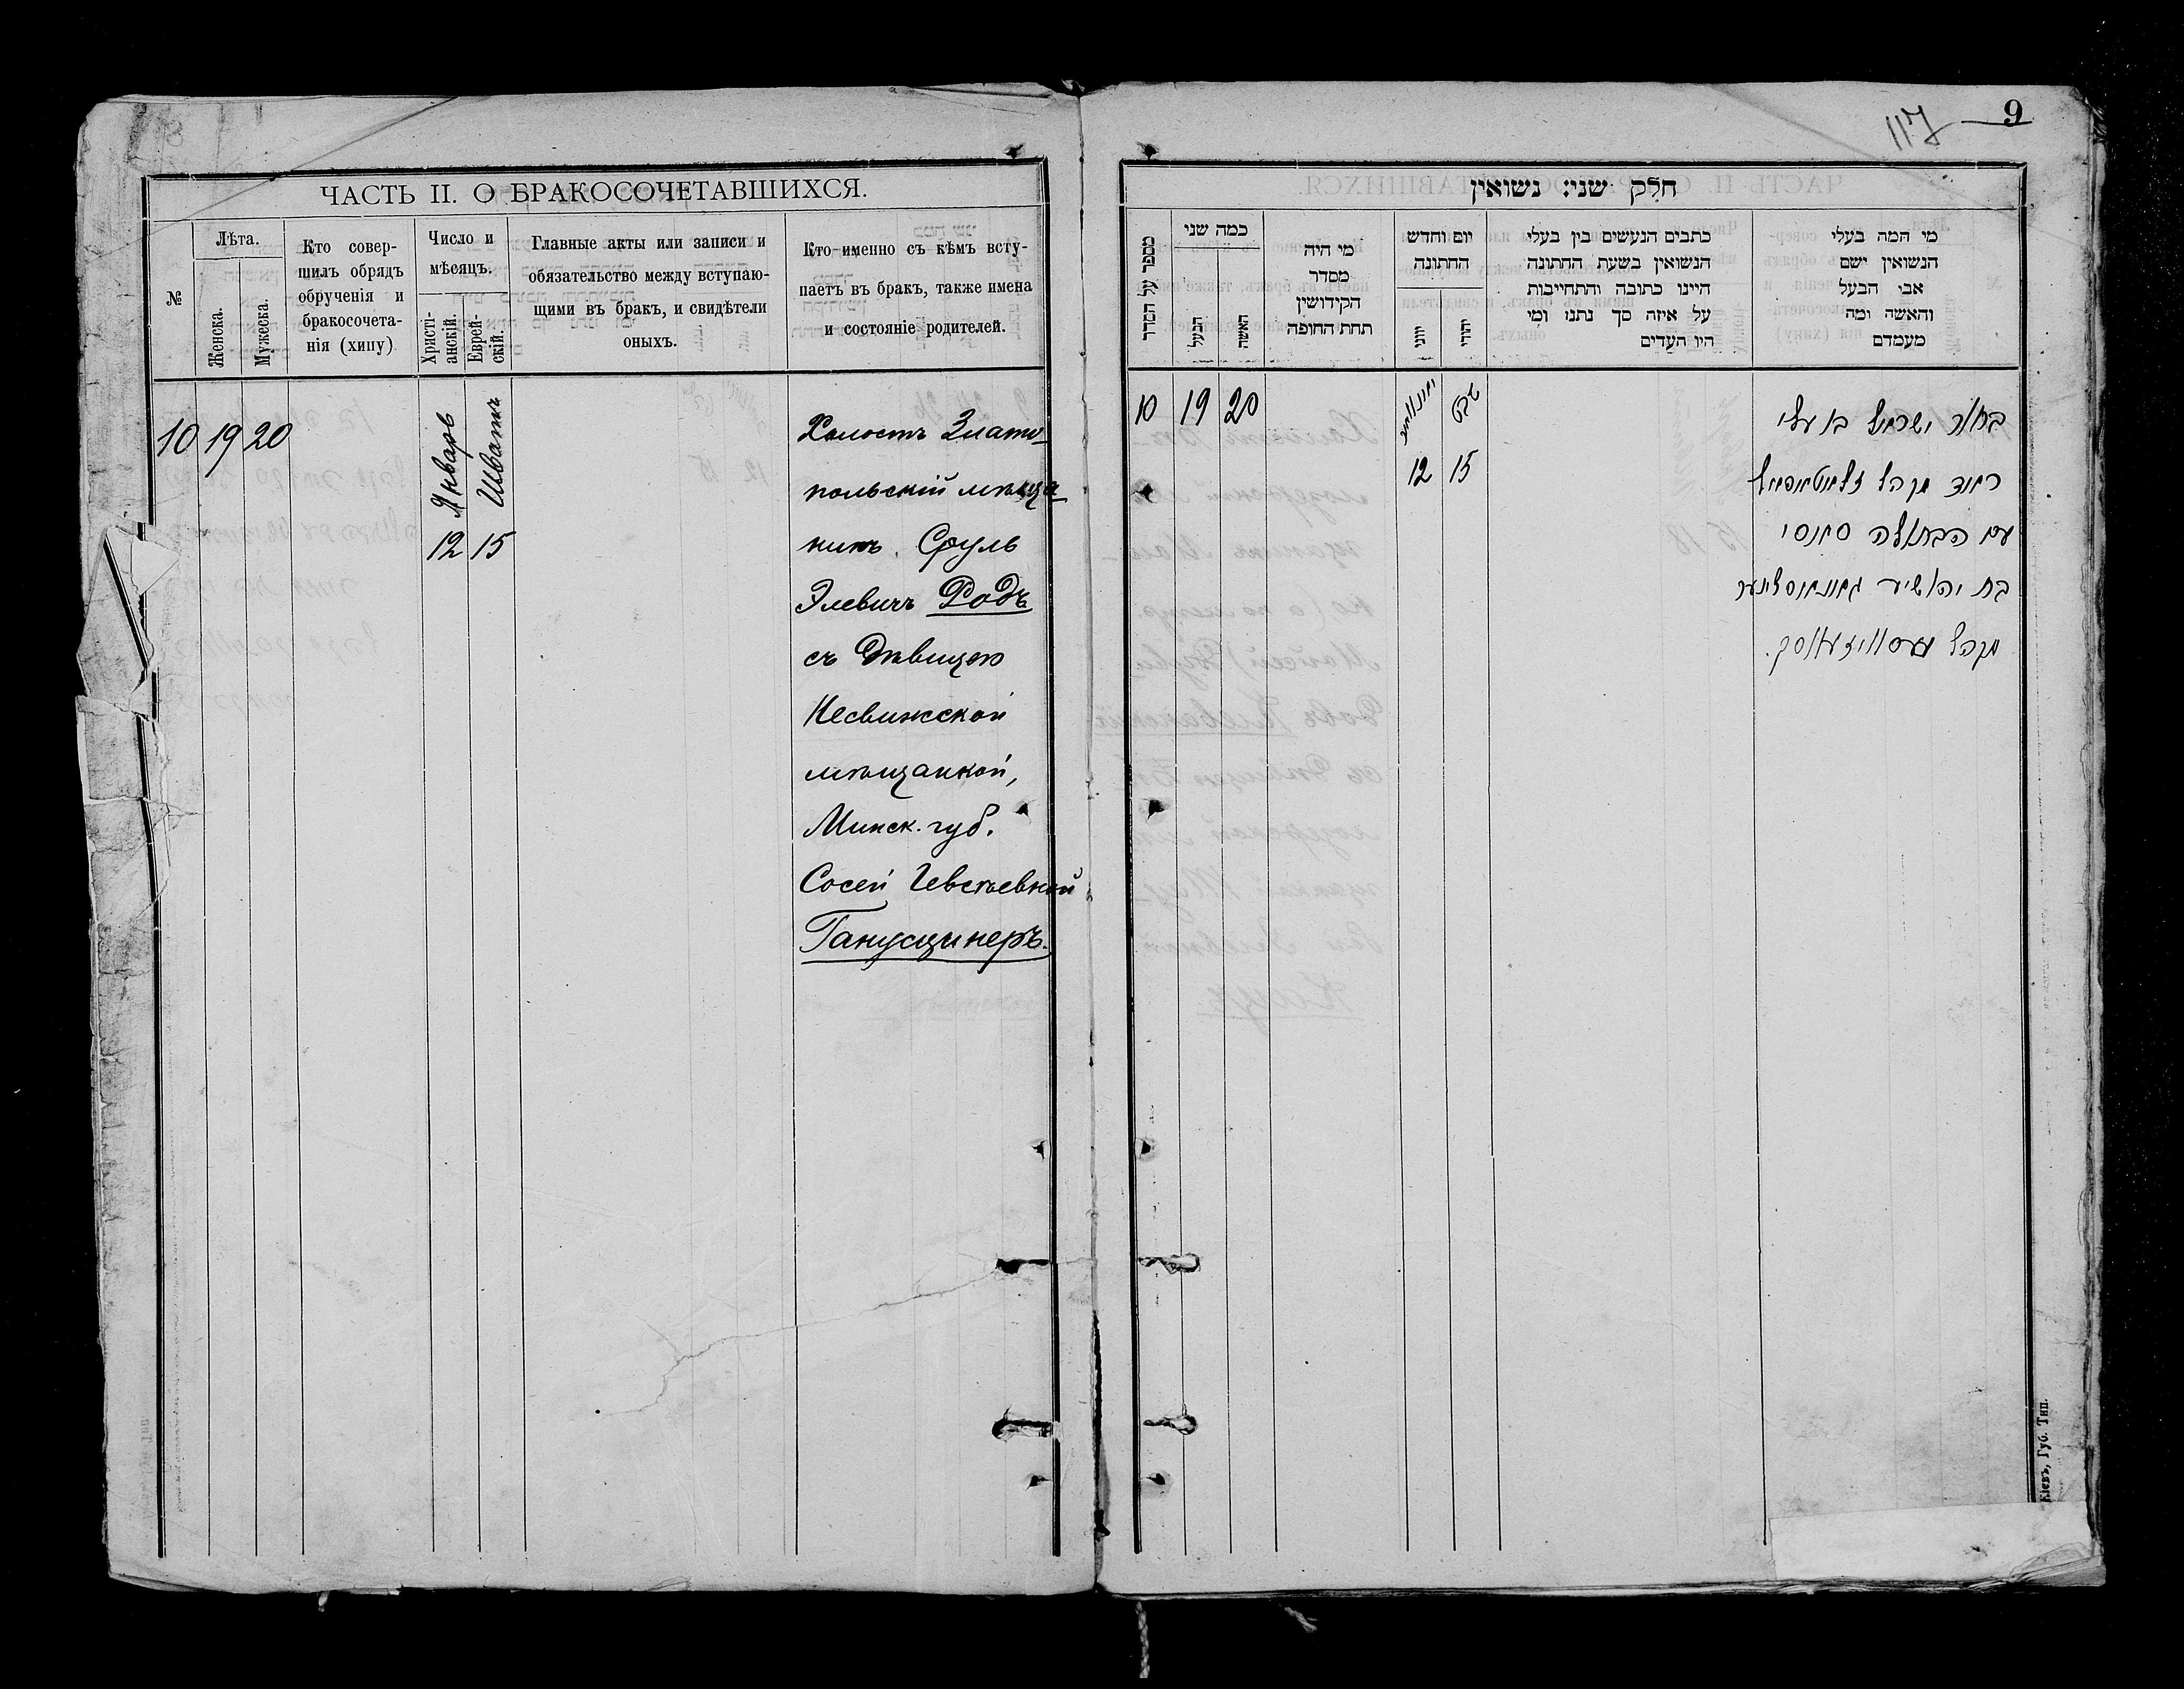 ЧАСТЬ II. О БРАКОСОЧЕТАВШИХСЯ.
№
Лѣта.
Женска.
Мужеска.
Кто совер-
шилъ обрядъ
обрученія и
бракосочета-
нія (хипу)
Число и
мѣсяцъ.
Христі-
анскій.
Еврей-
скій.
Главные акты или записи и
обязательство между вступаю-
щими въ бракъ, и свидѣтели
оныхъ.
Кто именно съ кѣмъ всту-
паетъ въ бракъ, также имена
и состояніе родителей.
10 19 20
Январь
12
Шватъ
15
Холостъ Злато-
польскій мѣща
нинъ Сруль
Элевичъ Родъ
съ дѣвицею
Несвижской
мѣщанкой,
Минск. губ.
Сосей
Ганусцинеръ.
9
117
חלק שני: נשואין
מספר על הסדר
כמה שני
הבעל
האשה
מי היה
מסדר
הקידושין
תחת החופה
יום וחדש
החתונה
יוני
יהודי
כתבים הנעשים בין בעלי
הנשואין בשעת החתונה
היינו כתובה והתחייבות
על איזה סך נתנו ומי
היו העדים
מי המה בעלי
הנשואין ושם
אבי הבעל
והאשה ומה
מעמדם
10 19 20
יאנוואר
12
שבט
15
בחור ישראל בן עלי
ראד מקהל זלאטאפאל
עם הבתולה סאסי
בת יהושיע גאנאסצינער
מקהל נעסוויזש
Кіевъ, Губ. Тип.